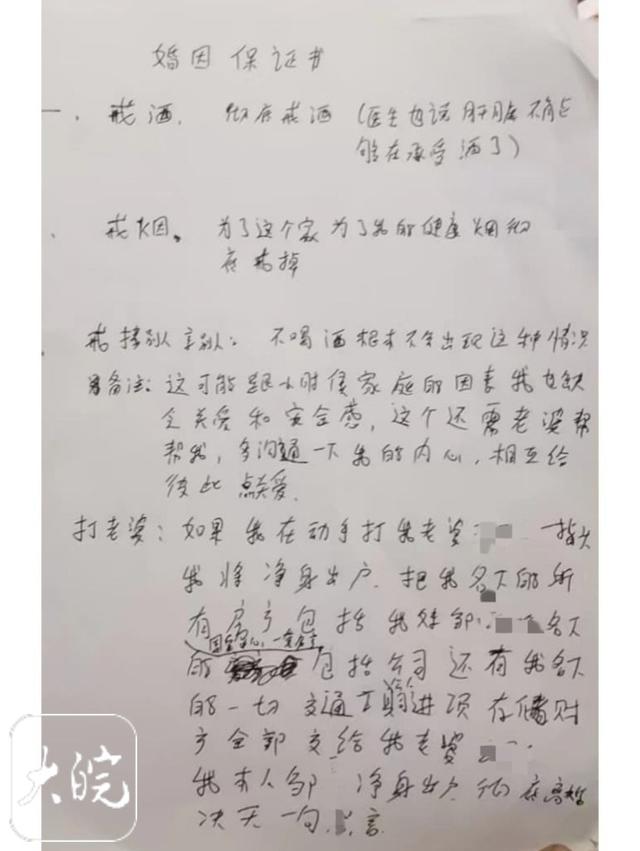 婚因保证书
一、戒酒. 彻底戒酒 (医生也说肝脏不能
够在承受酒了)
、戒烟。为了这个家为了我的健康烟彻
底戒掉
戒 : 不喝酒根本不会出现这种情况
另备注: 这可能跟小时候家庭的因素我也缺
乏关爱和安全感, 这个还需老婆帮
帮我, 多沟通一下我的内心, 相互给
彼此点关爱.
打老婆: 如果我在动手打我老婆 一指头
我将净身出户. 把我名下的所
有房产包括我 邹 名下
的 包括公司还有我名下
的一切交通工 进项存储财
产全部交给我老婆
我本人邹 净身出户
决无一句 言.
大皖